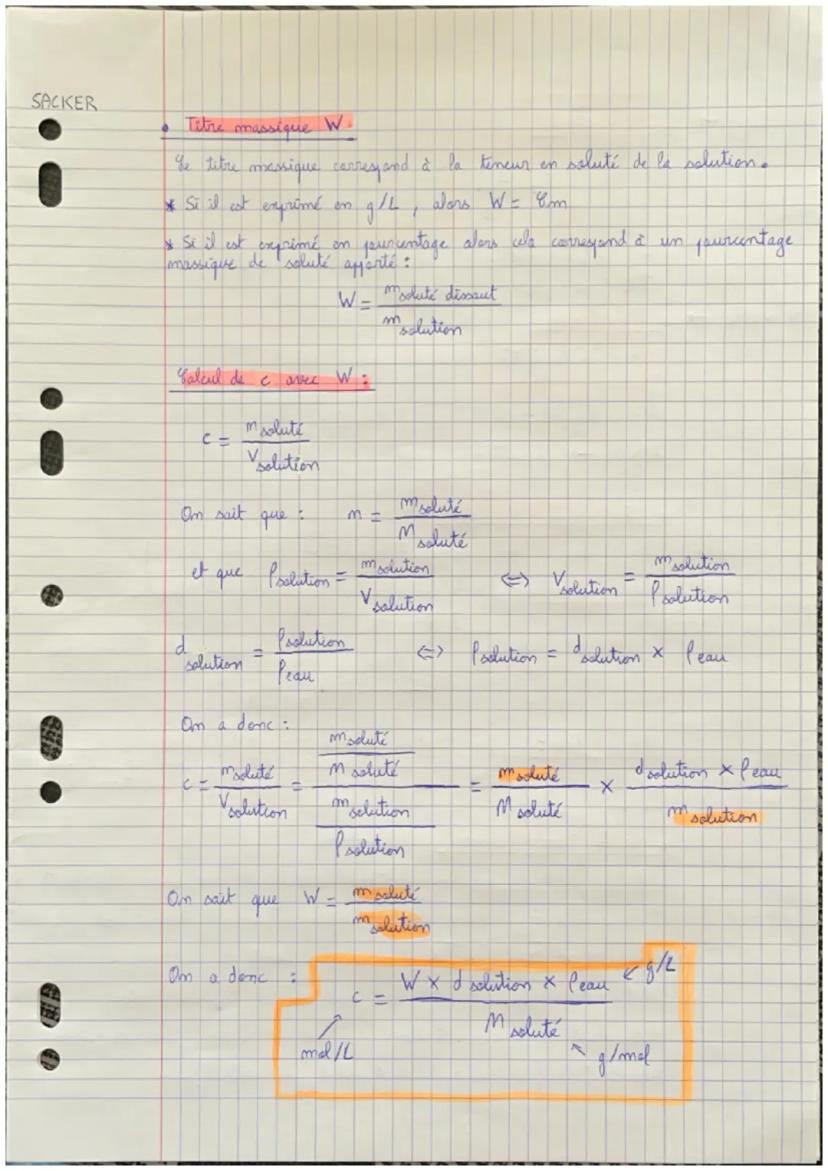 SACKER
• Titre massique W.
Le titre massique correspond à la teneur en soluté de la solution.
* Si il est exprimé en g/L, alors W = Cm
* Si il est exprimé en pourcentage alors cela correspond à un pourcentage
massique de soluté apporté :
W = m soluté dissout / m solution
Calcul de c avec W :
c = n soluté / V solution
On sait que : n = m soluté / M soluté
et que ρ solution = m solution / V solution <=> V solution = m solution / ρ solution
d solution = ρ solution / ρ eau <=> ρ solution = d solution × ρ eau
On a donc :
c = n soluté / V solution = (m soluté / M soluté) / (m solution / ρ solution) = m soluté / M soluté × d solution × ρ eau / m solution
On sait que W = m soluté / m solution
On a donc : c = W × d solution × ρ eau / M soluté
g/L
mol/L
g/mol